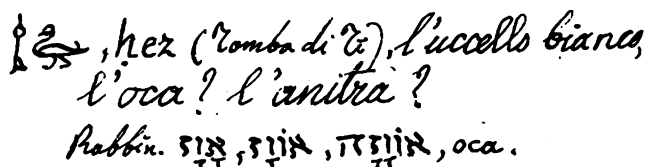 , ḥez (Tomba di Ti), l'uccello bianco,
l'oca? l'anitra?
Rabbin. אוז, אווז, אווזה, oca.